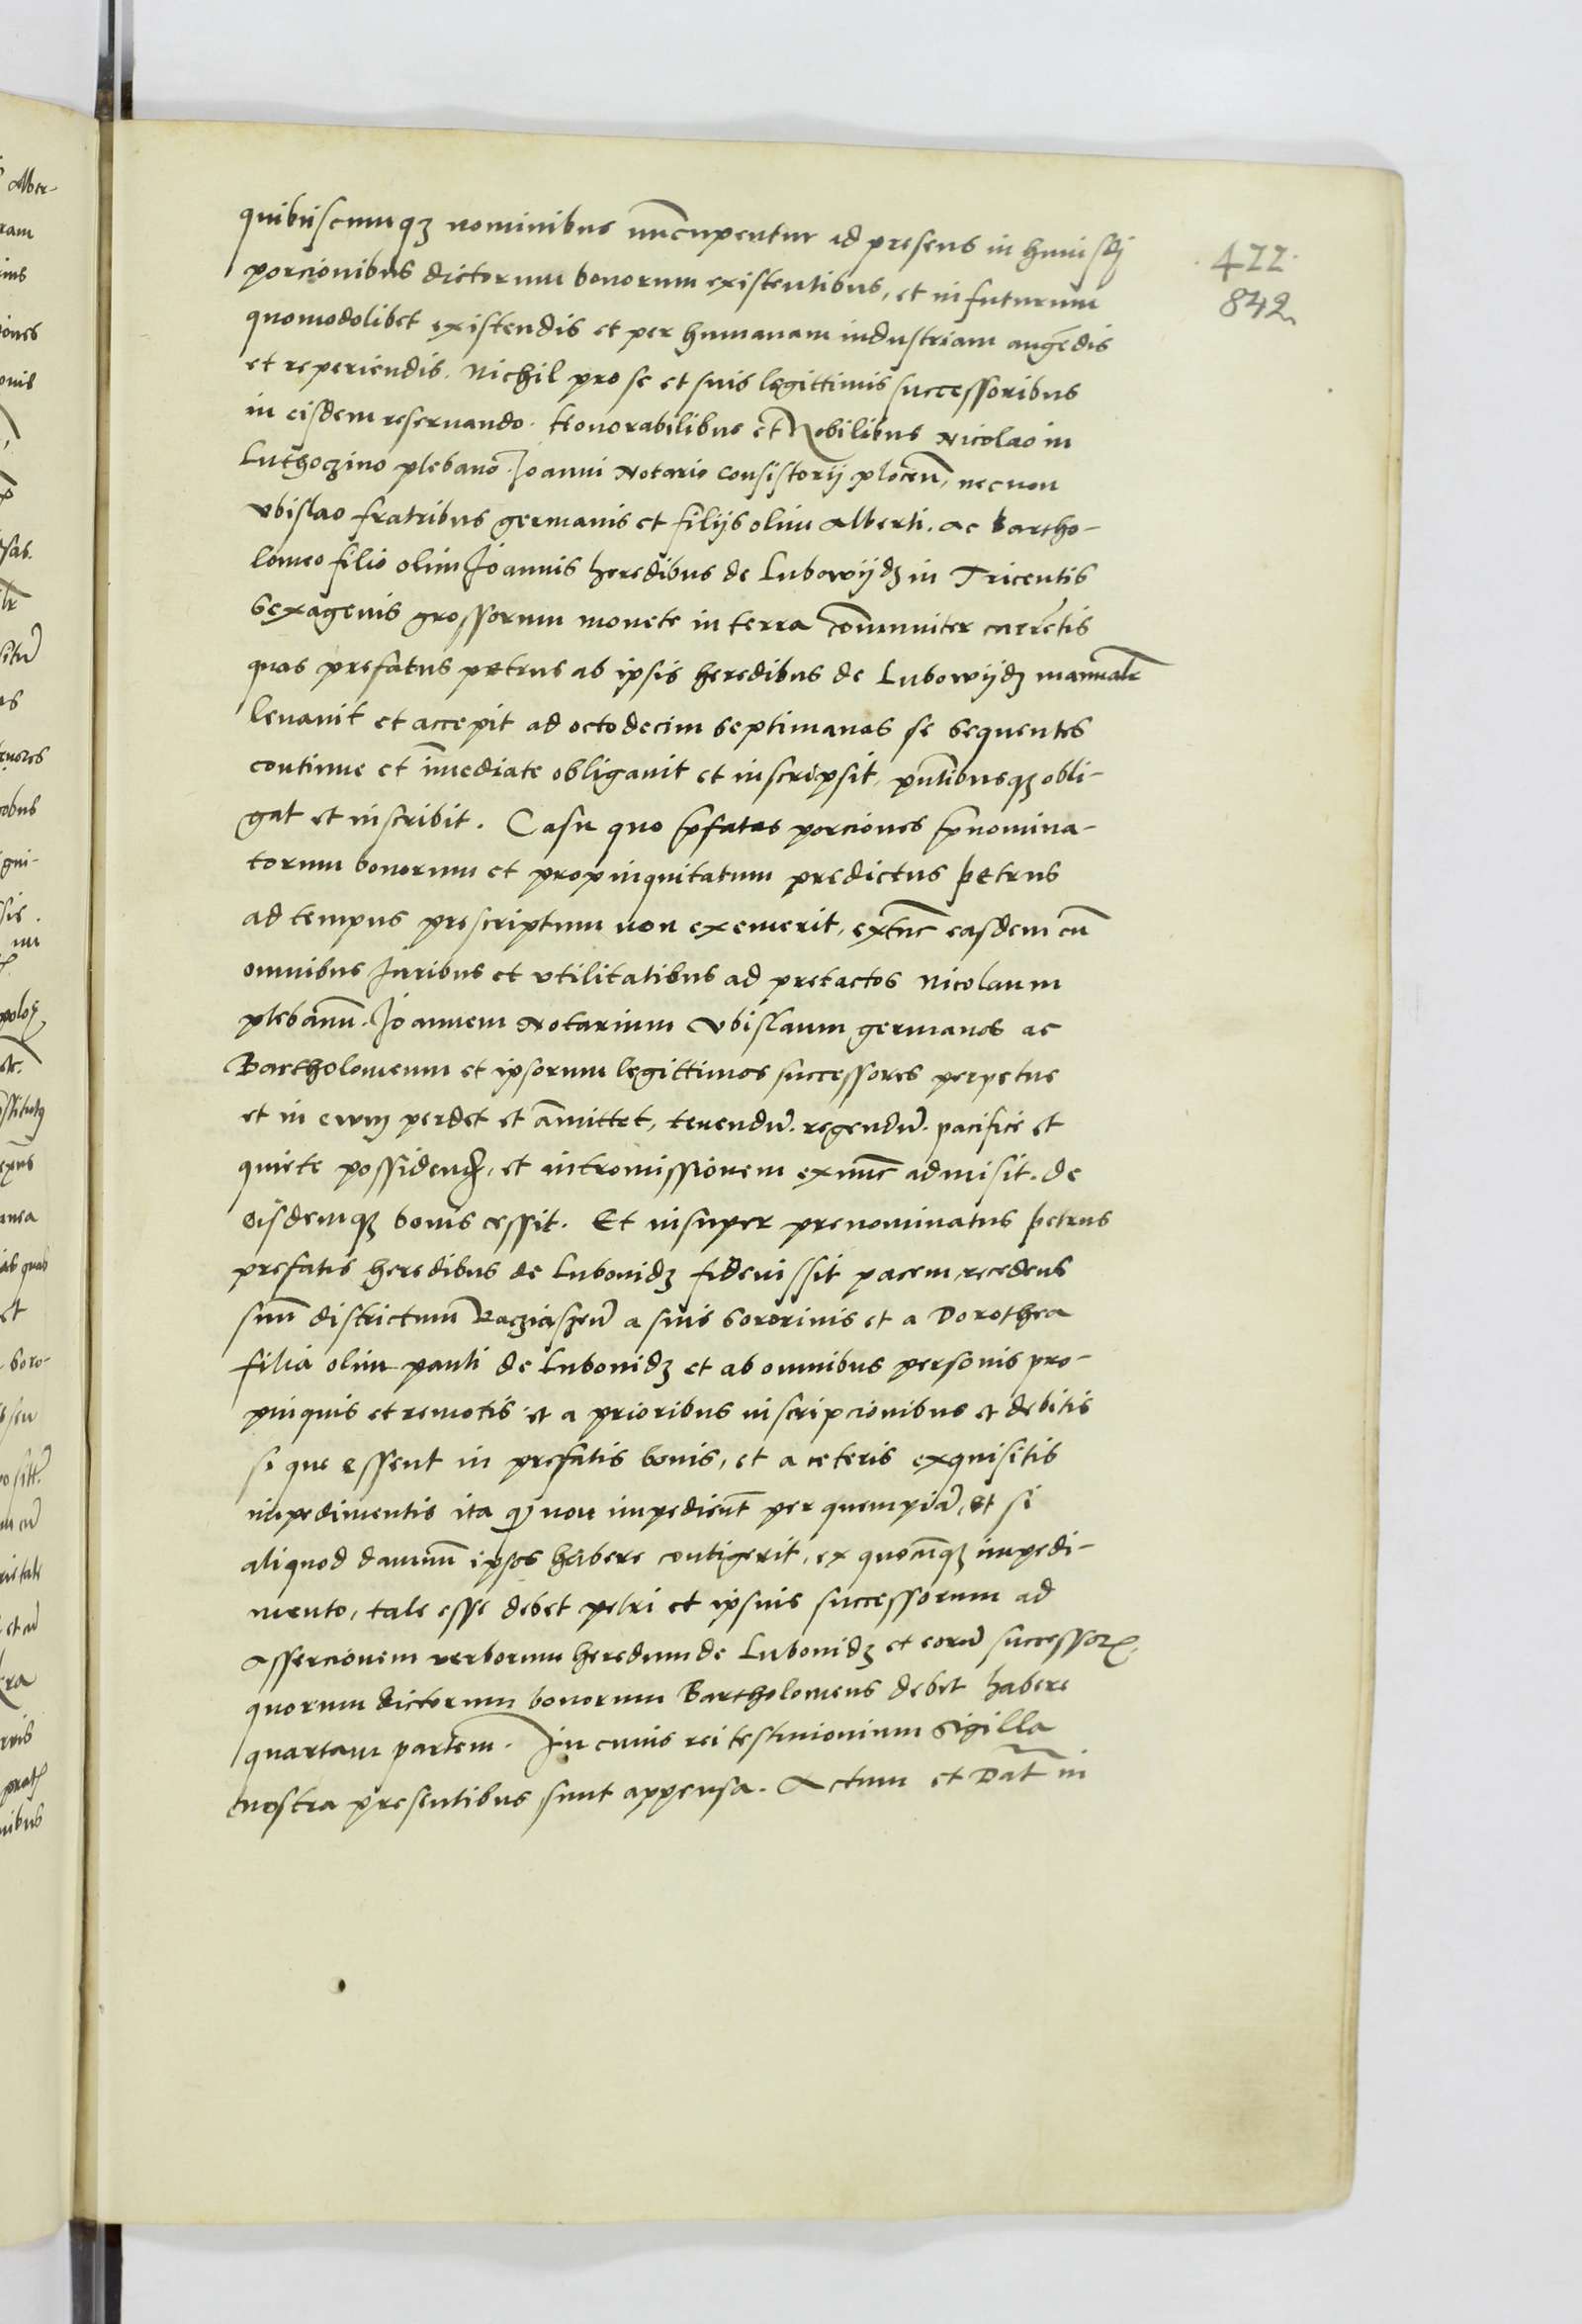 quibuscumqꝫ nominibus nũcupentur ad presens in huiusdj
porcionibus dictorum bonorum existentibus, et in futurum
quomodolibet existendis et per humanam industriam augẽdis
et reperiendis. Nichil pro se et suis legittimis successoribus
in eisdem reseruando. Honorabilibus et Nobilibus Nicolao in
Luthoczino plebano. Joanni Notario Consistorij plocẽn, necnon
Vbislao fratribus germanis et filijs olim Alberti. Ac Bartho-
lomeo filio olim Joannis heredibus de Lubowijdz in Tricentis
sexagenis grossorum monete in terra cõmuniter curreñtis
quas prefatus petrus ab ipsis heredibus de Lubowijdz manualr̃
leuauit et accepit ad octodecim septimanas se sequentes
continue et ĩmediate obligauit et inscripsit, pñtibusqꝫ obli-
gat et inscribit. Casu quo p̃fatas porciones p̃nomina-
torum bonorum et propinquitatum predictus petrus
ad tempus prescriptum non exemerit, extũc easdem cũ
omnibus Juribus et vtilitatibus ad pretactos Nicolaum
plebanũ. Joannem Notarium Vbislaum germanos ac
Bartholomeum et ipsorum legittimos successores perpetue
et in ewm perdet et ãmittet, tenendũ. regendũ. pacifice et
quiete possidend̃, et intromissionem exnũc admisit. de
eisdemqꝫ bonis cessit. Et insuper prenominatus petrus
prefatis heredibus de Lubouidz fideiussit pacem, recedens
suũ districtum Racziąszeñ a suis sororinis et a Dorothea
filia olim pauli de Lubouidz et ab omnibus personis pro-
pinquis et remotis et a prioribus inscripcionibus et debitis
si que essent in prefatis bonis, et a ceteris exquisitis
impedimentis ita ꝙ non impediẽt per quempiã, et si
aliquod damnũ ipsos habere contigerit, ex quocũqꝫ impedi-
mento, tale esse debet petri et ipsius successorum ad
Assercionem verborum heredum de Lubouidz et eorũ successoꝝ.
quorum dictorum bonorum Bartholomeus debet habere
quartam partem. In cuius rei testimonium Sigilla
nostra presentibus sunt appensa. Actum et Dat̃ in
422.
842